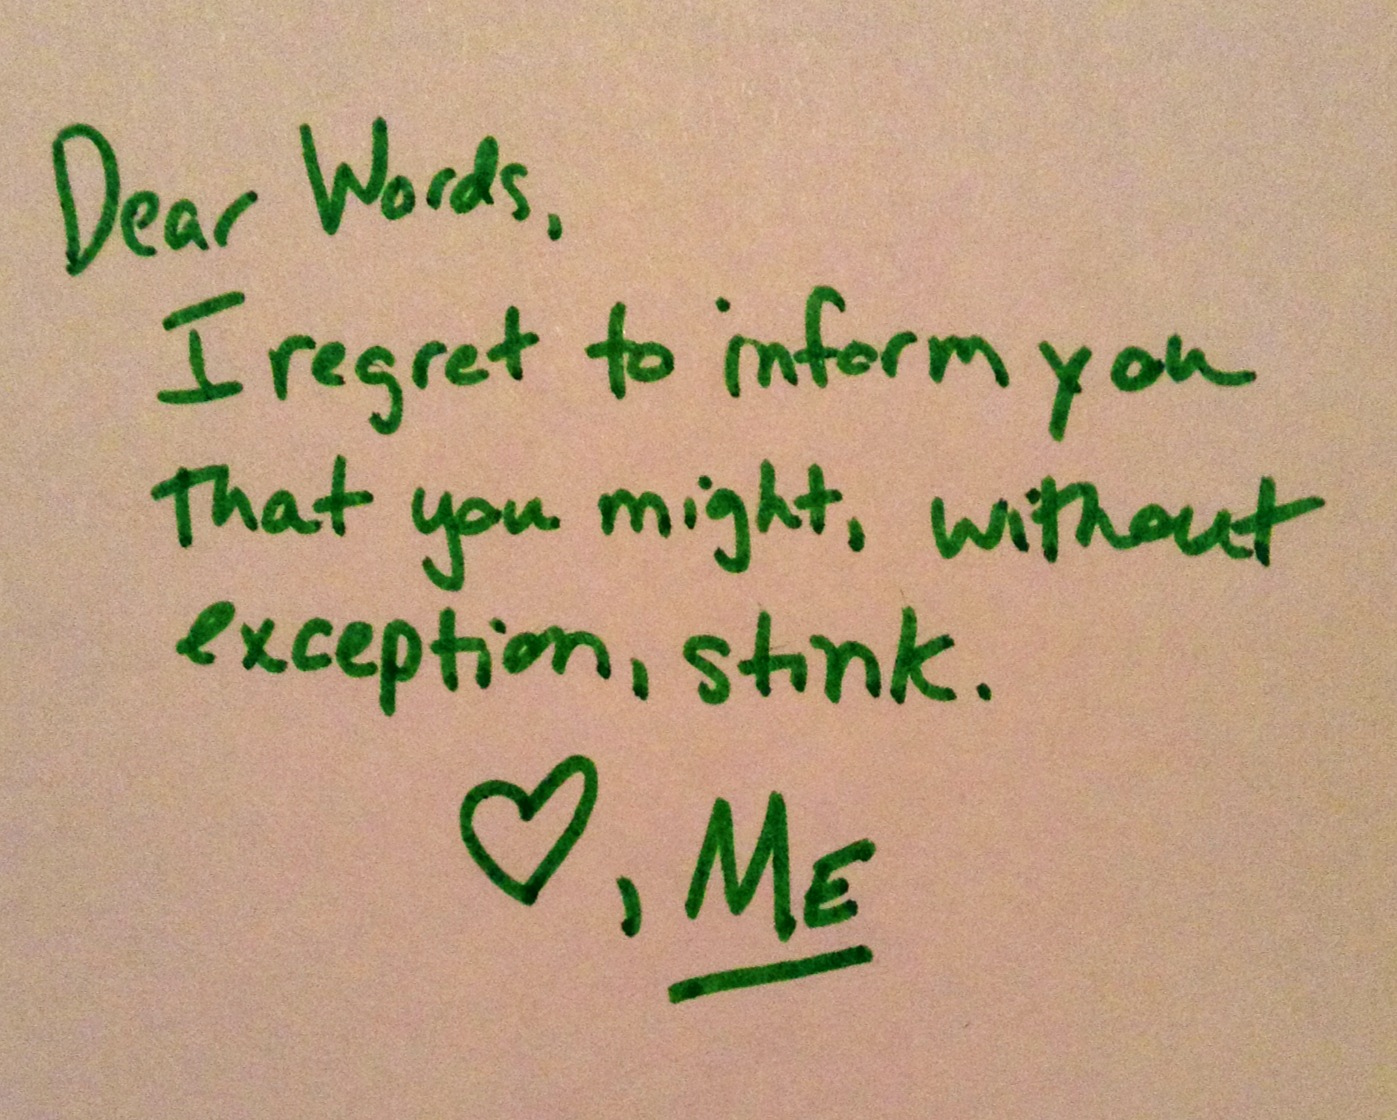 Dear Words,
I regret to inform you
that you might, without
exception, stink.
♡, ME